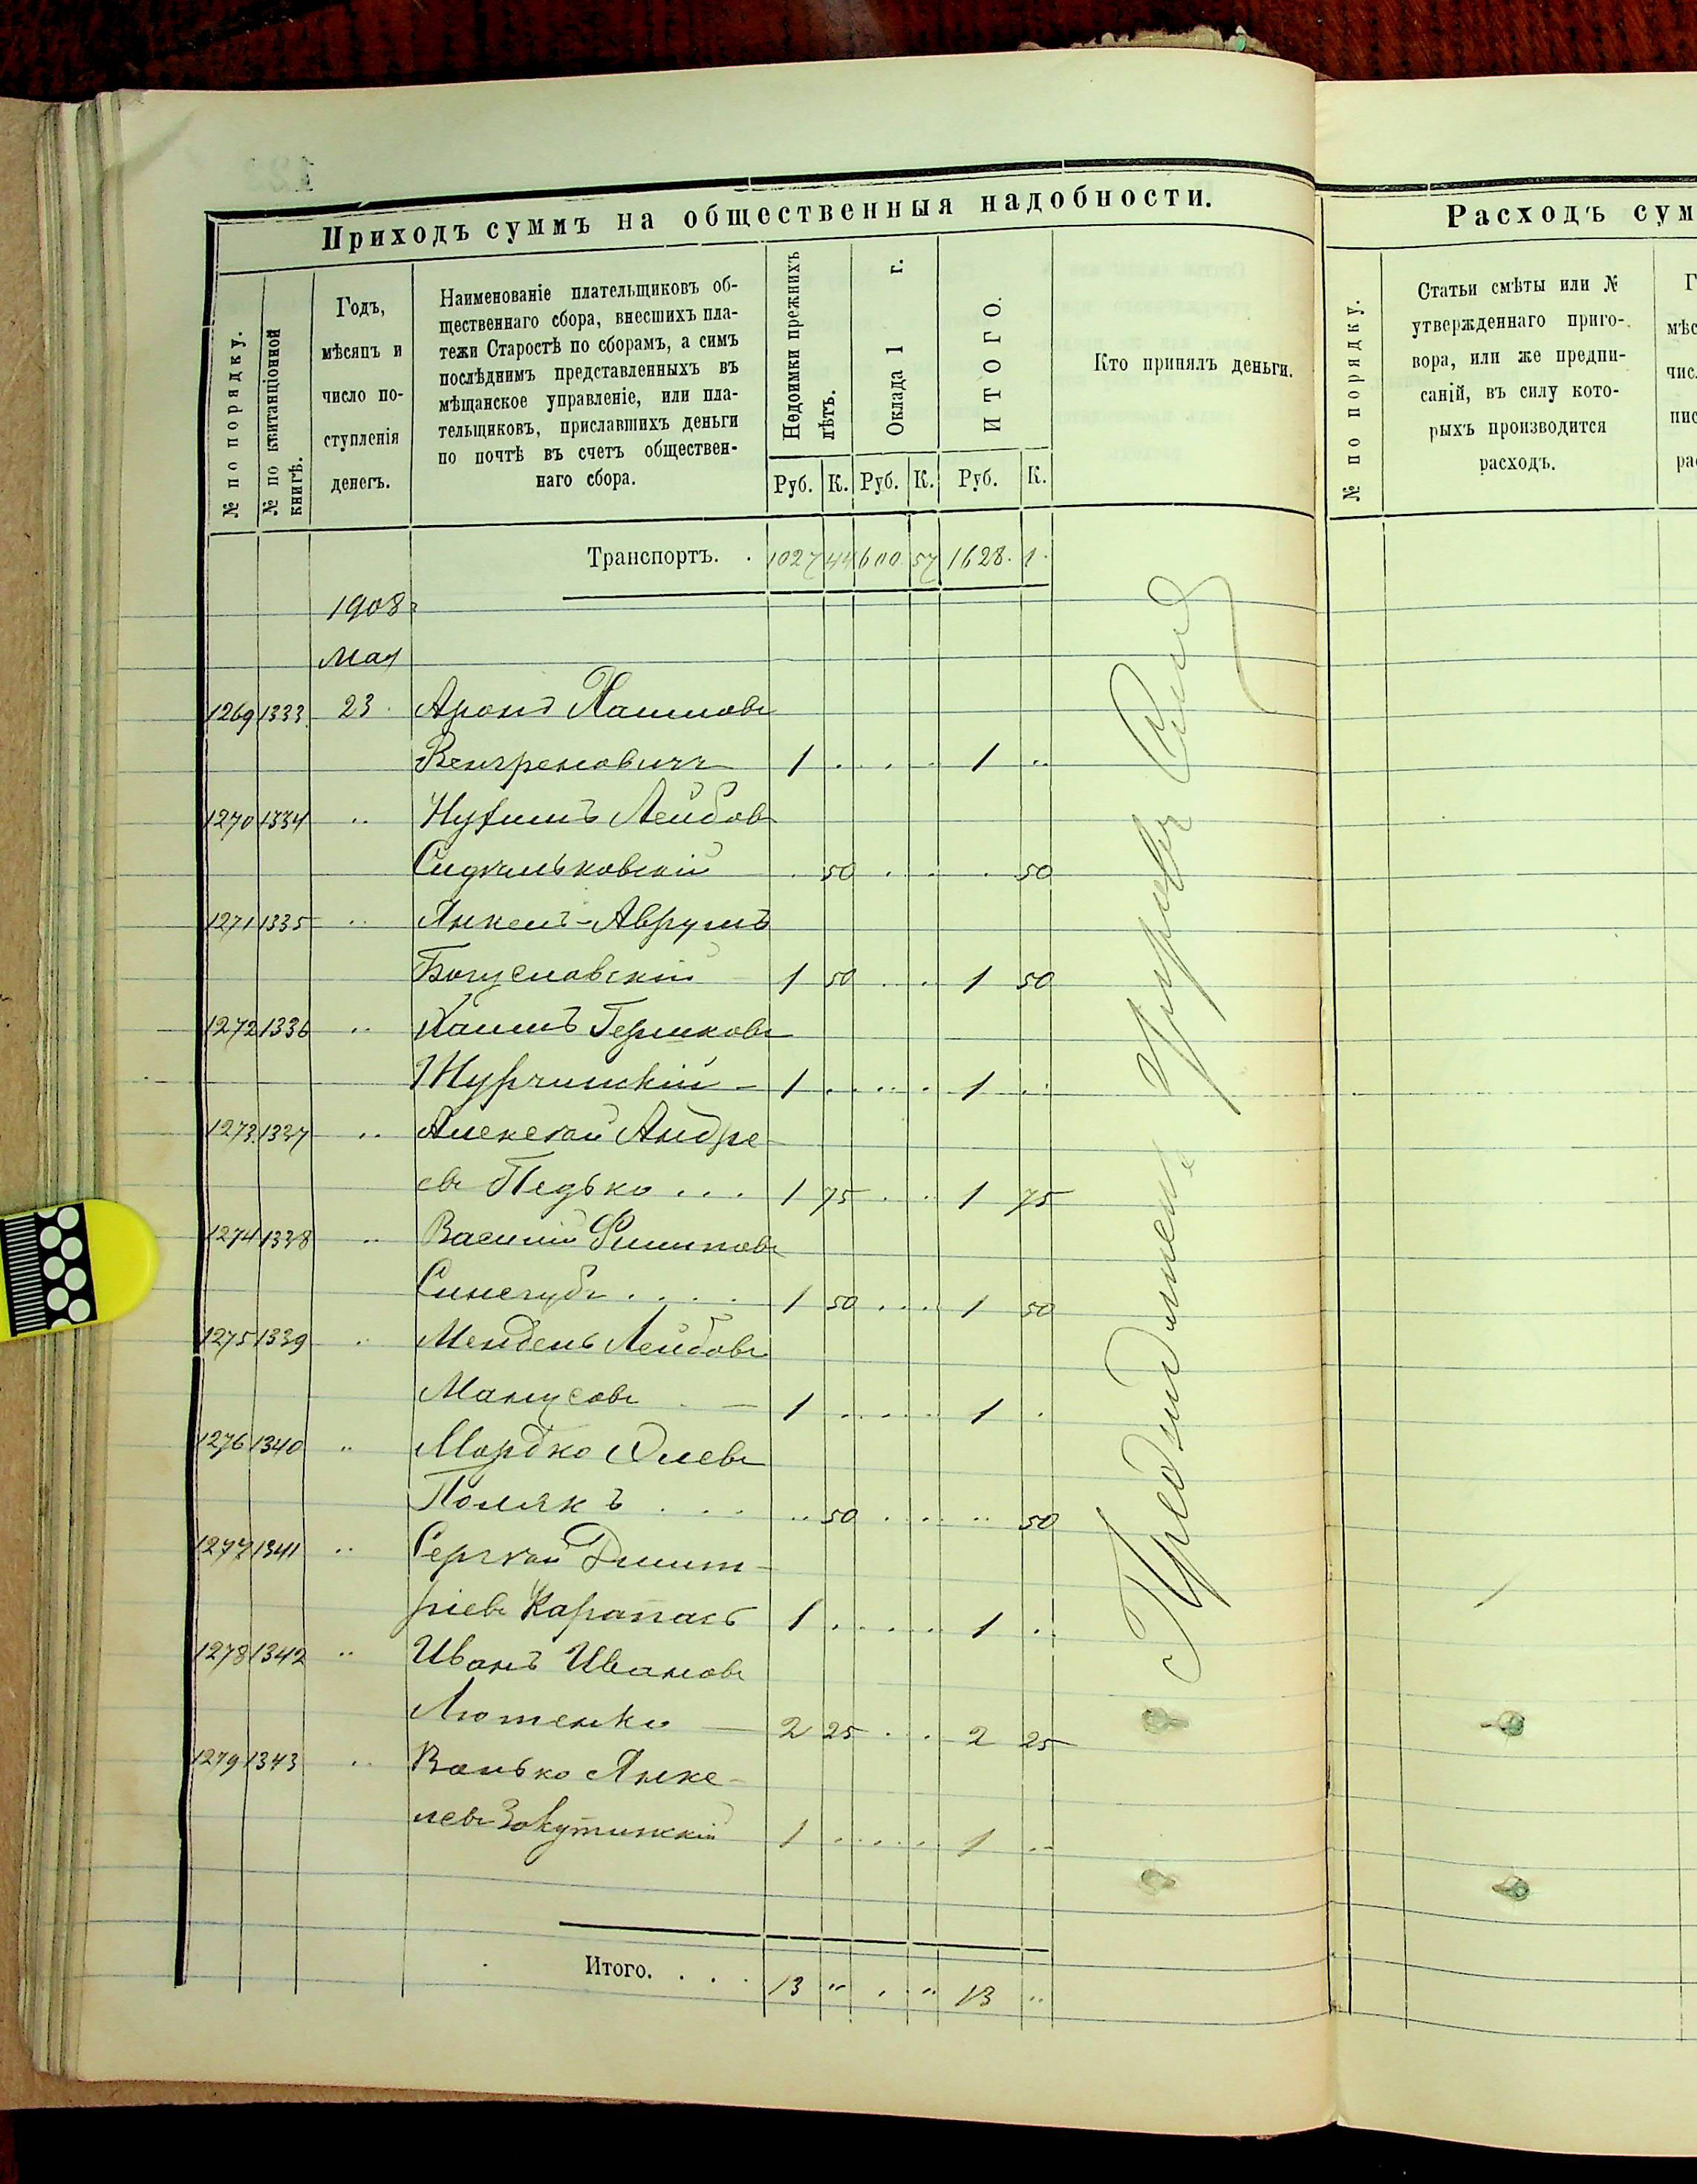 Приходъ суммъ на общественныя надобности.
№ по порядку.
№ по квитанціонной книгѣ.
Годъ,
мѣсяцъ и
число по-
ступленія
денегъ.
Наименованіе плательщиковъ об-
щественнаго сбора, внесшихъ пла-
тежи Старостѣ по сборамъ, а симъ
послѣднимъ представленныхъ въ
мѣщанское управленіе, или пла-
тельщиковъ, приславшихъ деньги
по почтѣ въ счетъ обществен-
наго сбора.
Недоимки прежнихъ лѣтъ.
Оклада 1 г.
ИТОГО.
Руб. К. Руб. К. Руб. К.
Кто принялъ деньги.
Транспортъ. . 1027 44 600 57 1628. 1.
1908 г
Мая
1269 1333 23 Аронъ Хаимовъ
1 . . . 1 ..
1270 1334 .. Нухимъ Лейбовъ
. 50 . . . 50
1271 1335 .. Янкель-Аврумъ
Богуславскій 1 50 . . 1 50
1272 1336 .. Хаимъ Гершковъ
1 . . . . 1 ..
1273 1337 .. Алексѣй Андре-
евъ Педько ... 1 75 . . 1 75
1274 1338 .. Василій Филиповъ
Синегубъ .... 1 50 ... 1 50
1275 1339 .. Мендель Лейбовъ
Манусовъ . — 1 ..... 1 .
1276 1340 .. Мордко Элевъ
Полякъ . . . .. 50 . .. .. 50
1277 1341 .. Сергѣй Дмит-
ріевъ Карапасъ 1 ..... 1 ..
1278 1342 .. Иванъ Ивановъ
Лютенко — 2 25 . . 2 25
1279 1343 .. Волько Янке-
левъ Закутинскій 1 ..... 1 ..
Итого. . . . 13 " . " 13 "
Расходъ сум
№ по порядку.
Статьи смѣты или №
утвержденнаго приго-
вора, или же предпи-
саній, въ силу кото-
рыхъ производится
расходъ.
Г
мѣс
чис
пис
ра